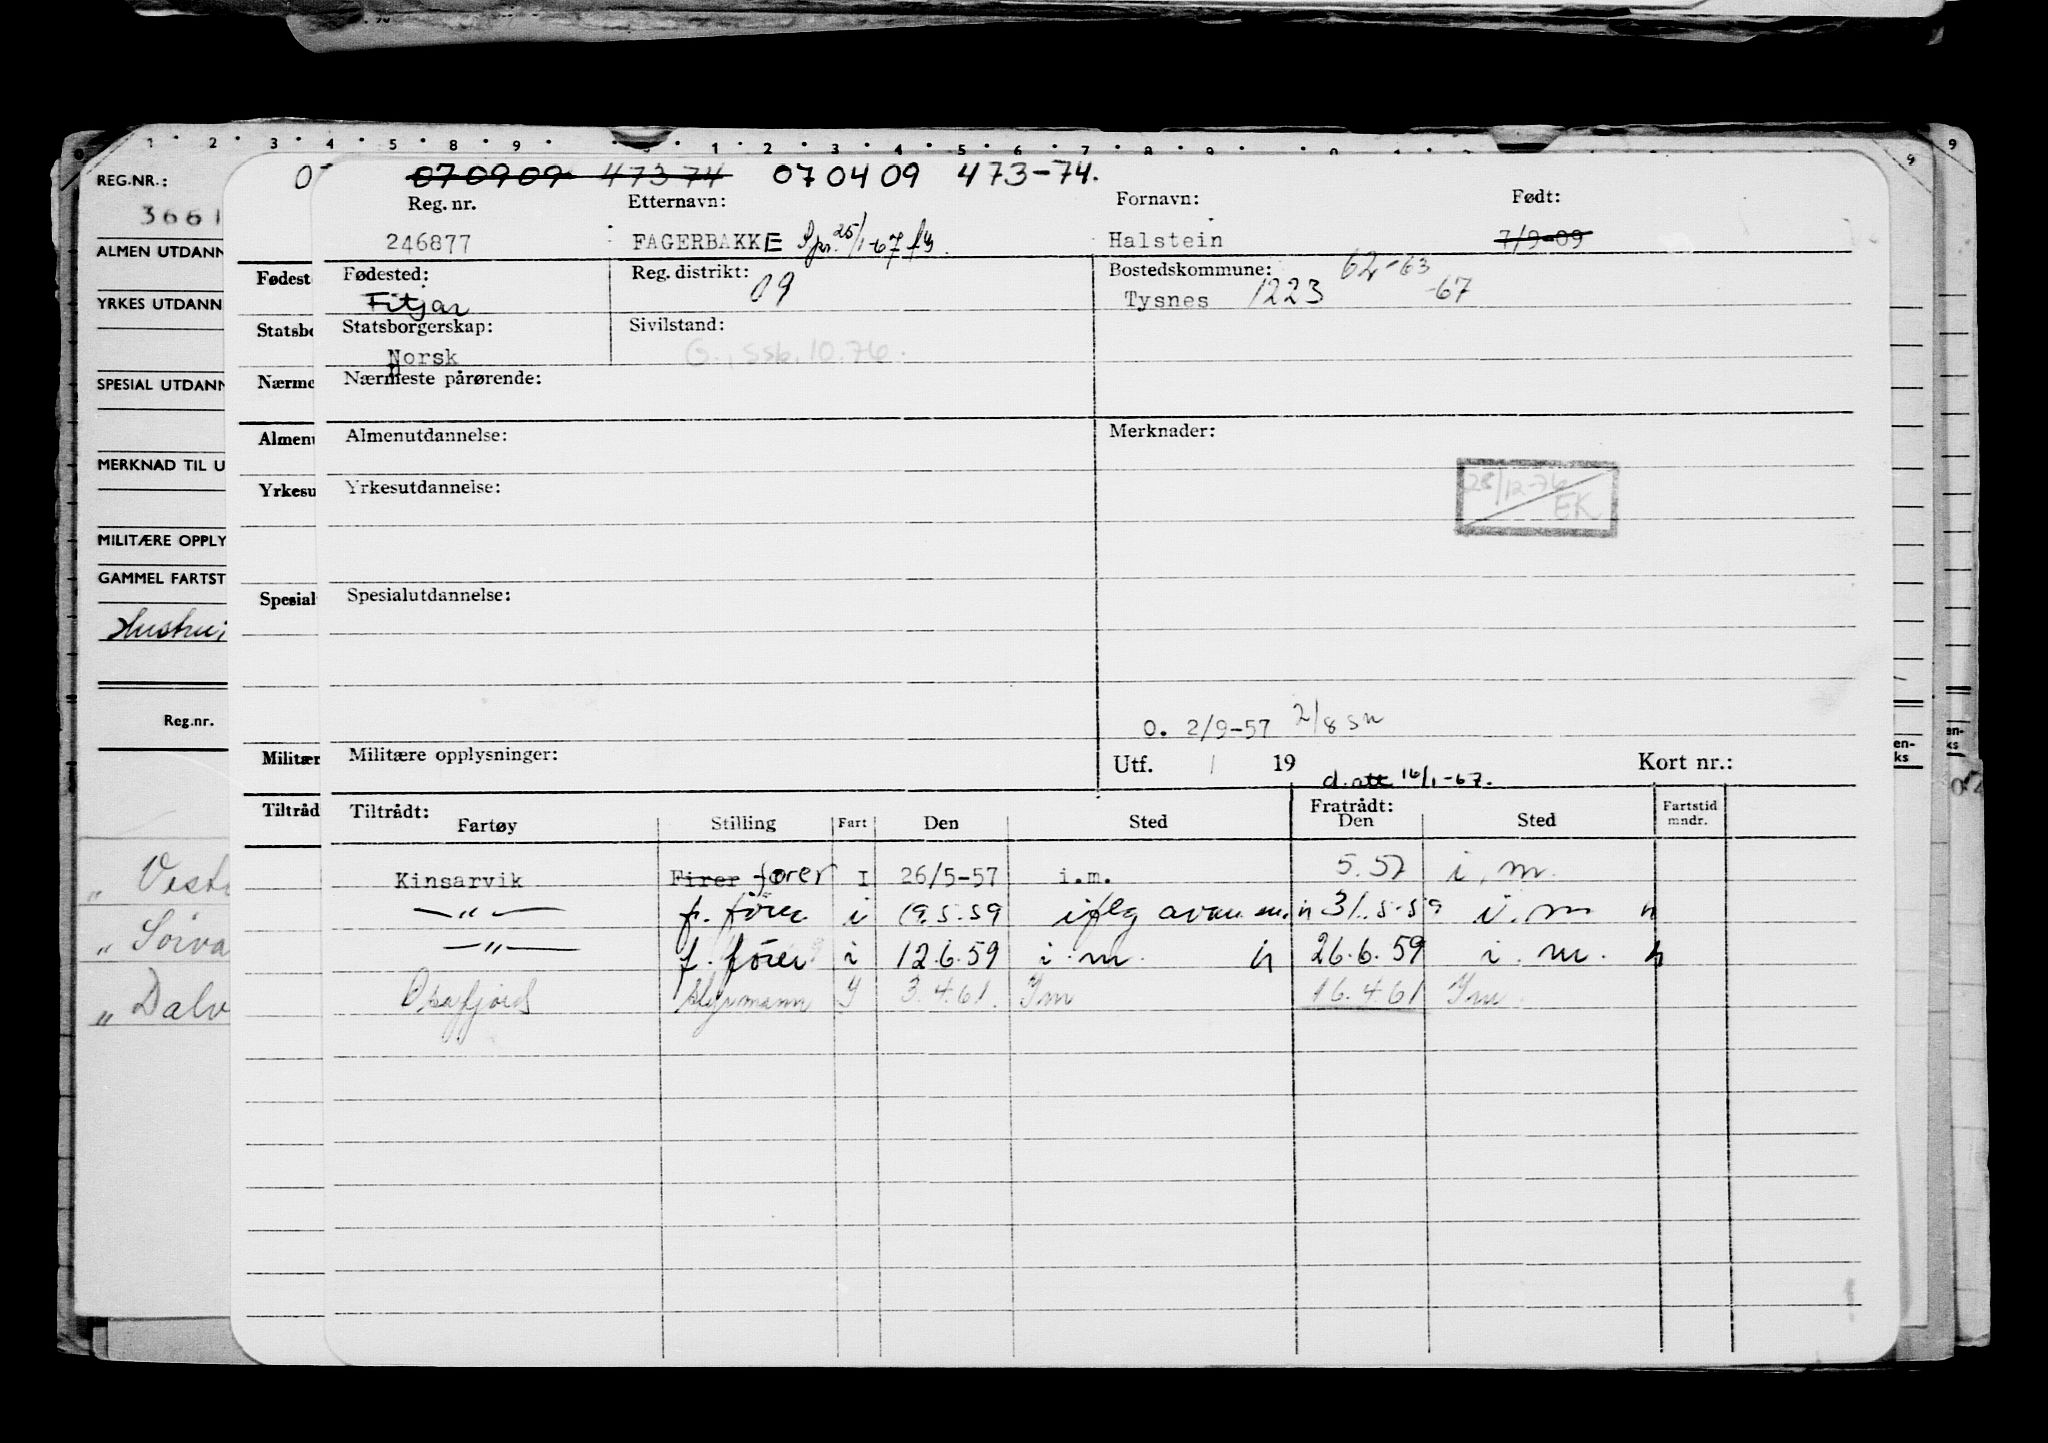 1 2 3 4 5 8 9 1 2 3 4 5 6 7 8 9
REG.NR.:
3661
ALMEN UTDANN
YRKES UTDANN
SPESIAL UTDANN
MERKNAD TIL U
MILITÆRE OPPLY
GAMMEL FARTST
Reg.nr.
„ Dalv
Fødest
Statsbo
Nærme
Almenu
Yrkesu
Spesial
Militær
Tiltråd
070909 47374 070409 473-74.
Reg. nr. Etternavn: Fornavn: Født:
246877 FAGERBAKKE 25/1-67 Halstein 7/9-09
Fødested: Reg. distrikt: 09 Bostedskommune: 62-63
Fitjar Tysnes 1223 -67
Statsborgerskap: Sivilstand:
Norsk G., ssk. 10.76.
Nærmeste pårørende:
Almenutdannelse: Merknader:
Yrkesutdannelse: 28/12-76 EK
Spesialutdannelse:
O. 2/9-57 2/8 sn
Militære opplysninger: Utf. / 19 Kort nr.:
d. att 16/1-67.
Tiltrådt: Fratrådt: Fartstid
Fartøy Stilling Fart Den Sted Den Sted mndr.
Kinsarvik Firer fører I 26/5-57 i.m. 5.57 i.m.
—„— f. fører i 19.5.59 31.5-59 i.m
—„— f. fører i 12.6.59 i.m. 26.6.59 i.m.
Osafjord styrmann I 3.4.61. Im 16.4.61 Im.